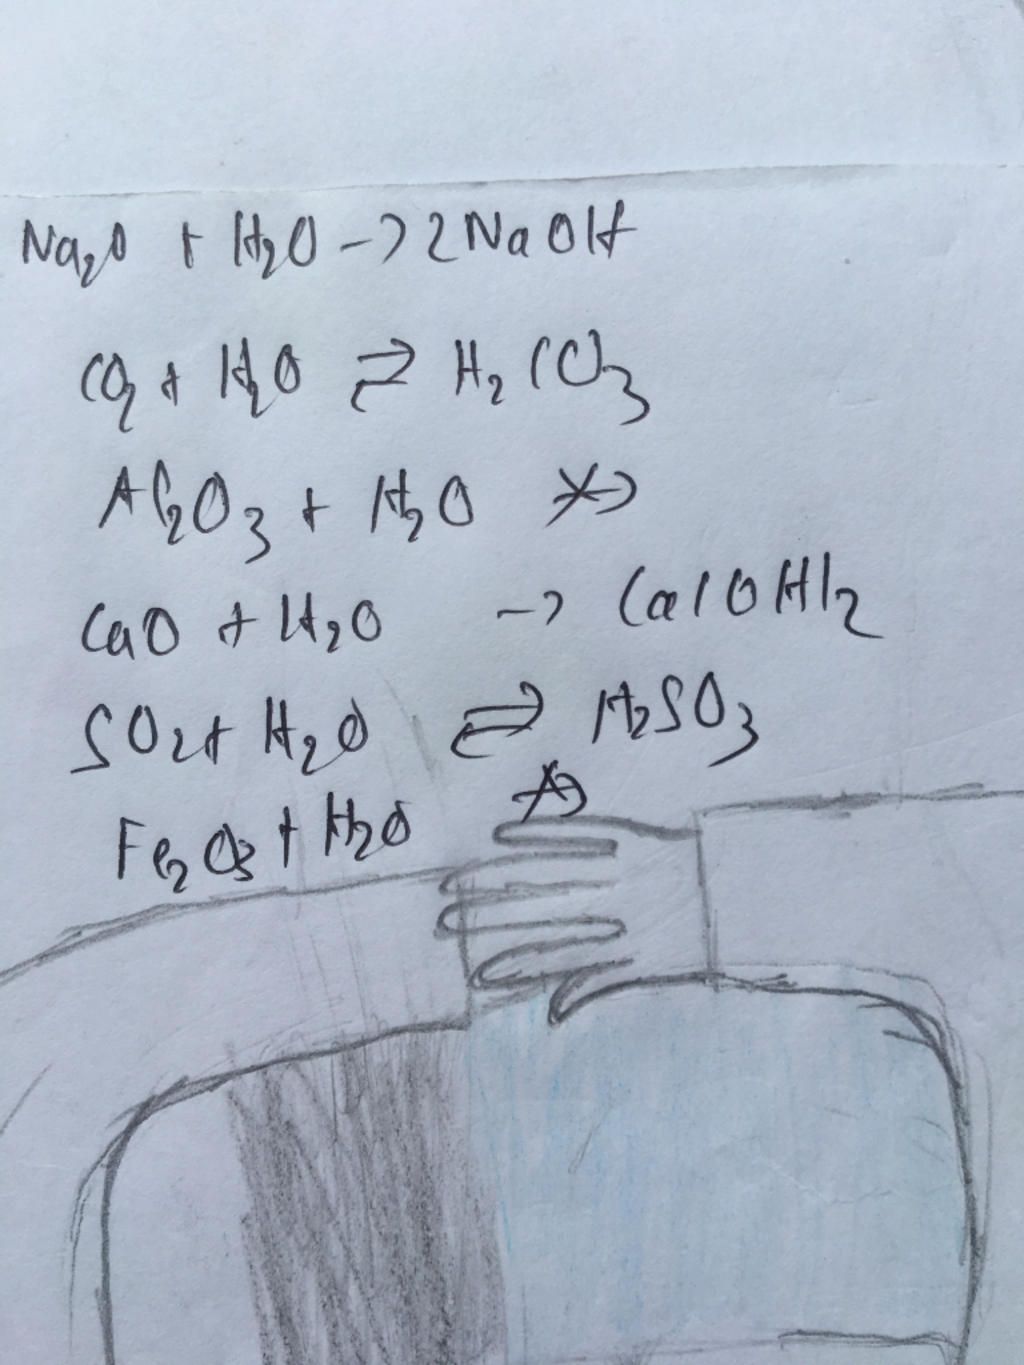 Na₂O + H₂O -> 2NaOH
CO₂ + H₂O ⇄ H₂CO₃
Al₂O₃ + H₂O ↛
CaO + H₂O -> Ca(OH)₂
SO₂ + H₂O ⇄ H₂SO₃
Fe₂O₃ + H₂O ↛